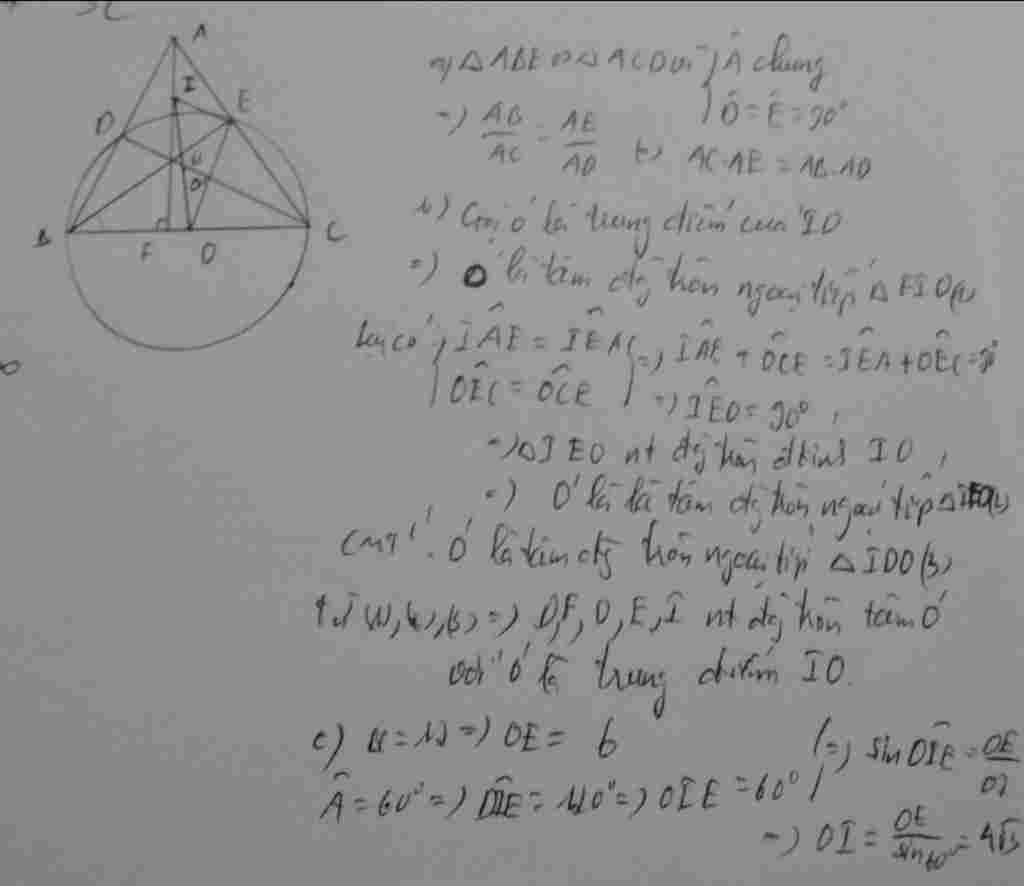 A
I
D
E
H
O'
B
F
O
C
a) △ABE ∽ △ACD vì { Â chung
D̂ = Ê = 90°
=) AB/AC = AE/AD (=) AC.AE = AB.AD
b) Gọi O' là trung điểm của IO
=) O' là tâm đg tròn ngoại tiếp △FIO (1)
Lại có { IÂE = IÊA =) IÂE + OĈE = IÊA + OÊC = 90°
OÊC = OĈE =) IÊO = 90°
=) △IEO nt đg tròn đkính IO
=) O' là là tâm đg tròn ngoại tiếp △IEO (2)
CMTT: O' là tâm đg tròn ngoại tiếp △IDO (3)
Từ (1), (2), (3) =) D, F, O, E, I nt đg tròn tâm O'
với O' là trung điểm IO.
c) BC = 12 =) OE = 6
 = 60° =) DÎE = 120° =) OIE = 60° } =) sin OÎE = OE/OI
=) OI = OE/sin 60° = 4√3